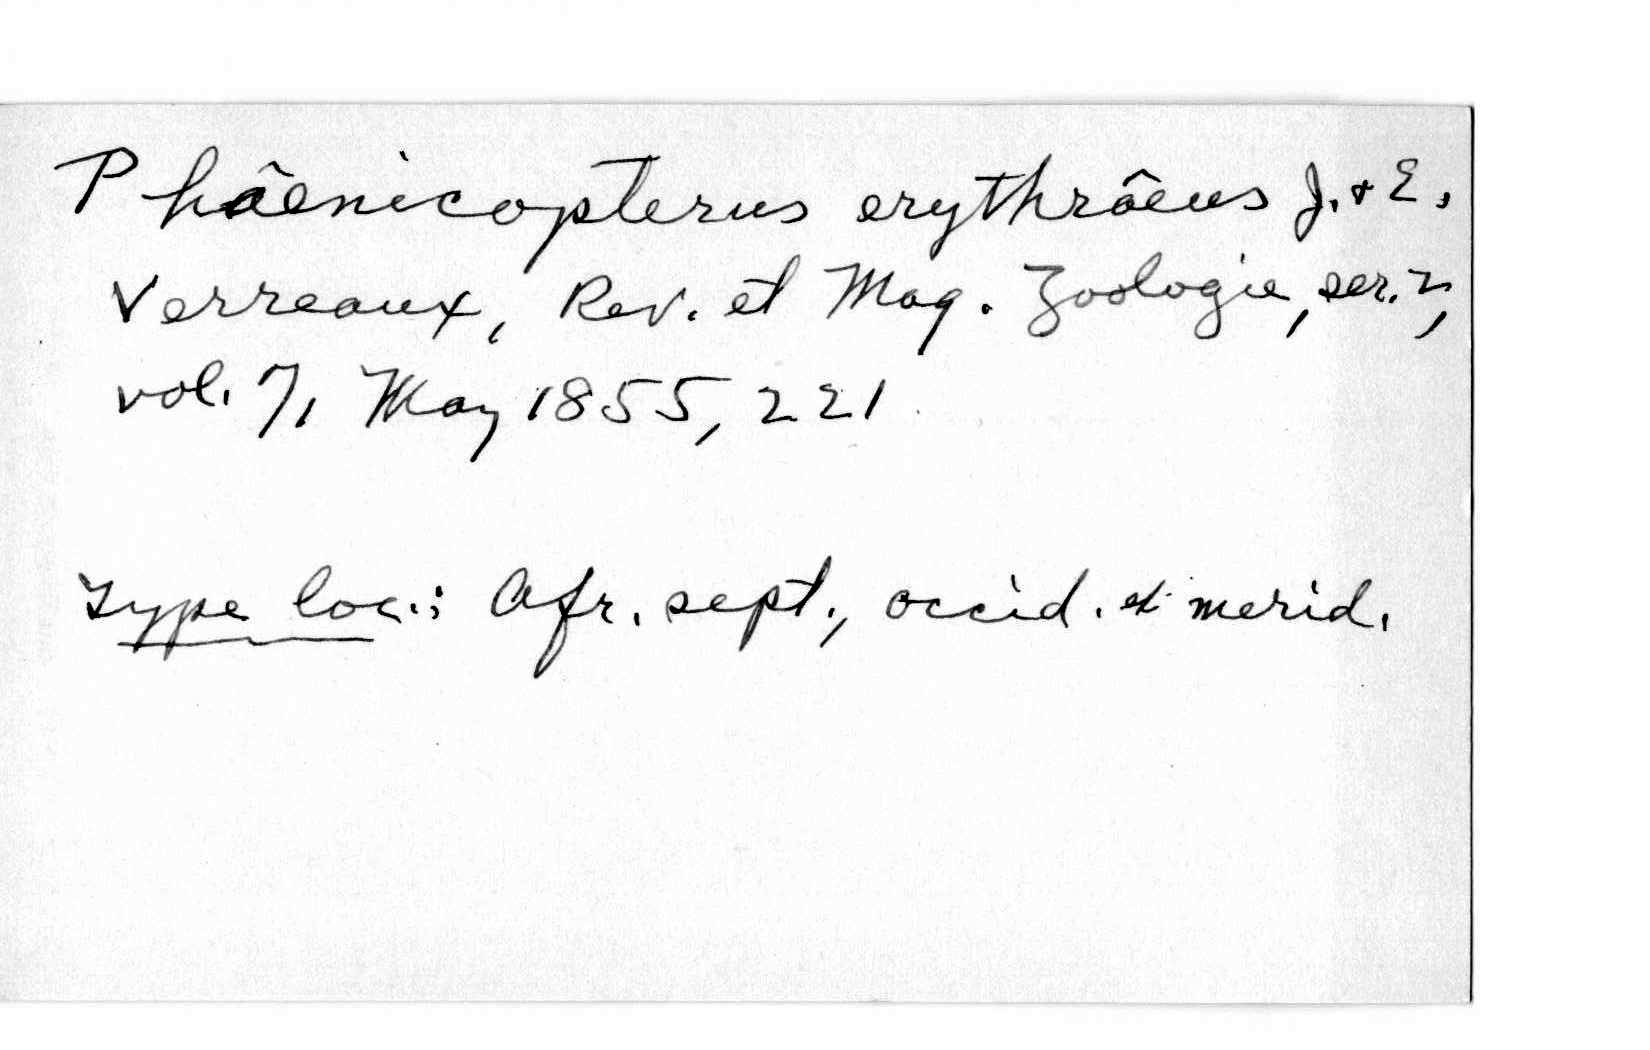 Phâenicopterus erythrâeus J. & E.
Verreaux, Rev. et Mag. Zoologie, ser. 2,
vol. 7, May 1855, 221
Type loc.: Afr. sept., occid. et merid.